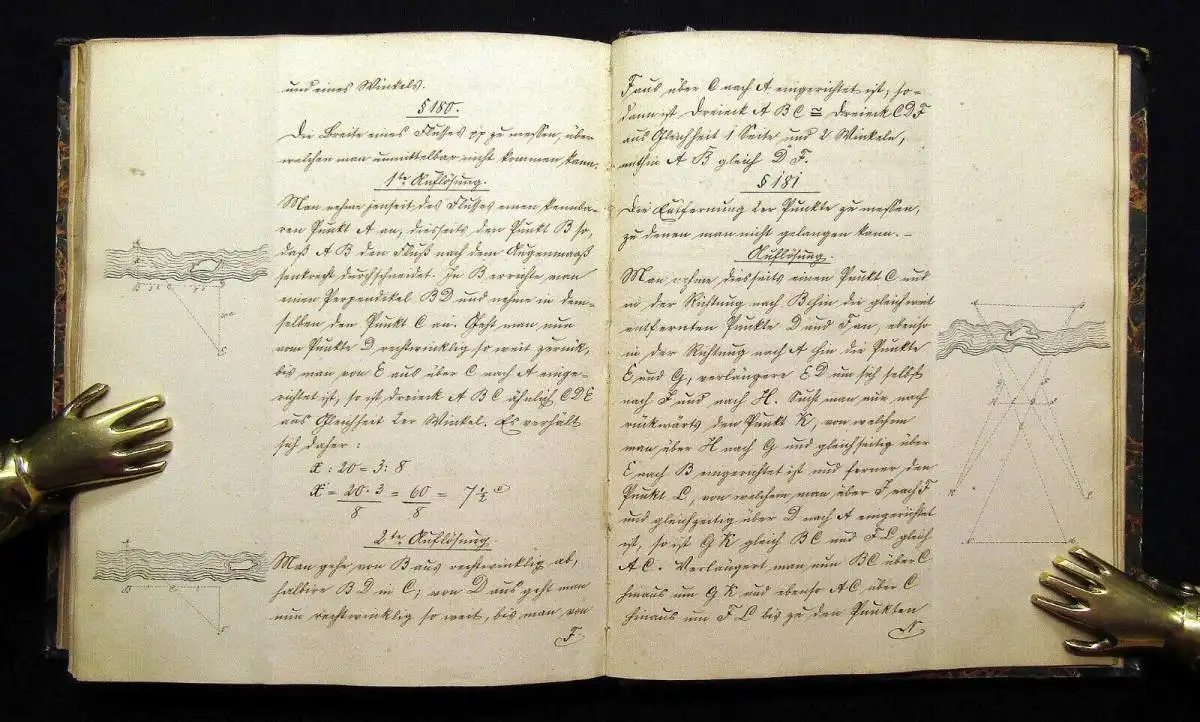 und eines Winkels.
§ 180.
Die Breite eines Flusses zu messen, über
welchen man unmittelbar nicht kommen kann.
1te Auflösung.
Man nehme jenseit des Flusses einen kennba-
ren Punkt A an, diesseits den Punkt B so,
daß A B den Fluß nach dem Augenmaaß
senkrecht durchschneidet. In B errichte man
einen Perpendikel B D und nehme in dem-
selben den Punkt C an. Geht man nun
vom Punkte D rechtwinklig so weit zurück,
bis man von E aus über C nach A einge-
richtet ist, so ist Dreieck A B C ähnlich C D E
aus Gleichheit 2er Winkel. Es verhält
sich daher:
x : 20 = 3 : 8
x = 20·3/8 = 60/8 = 7 1/2
2te Auflösung.
Man gehe von B aus rechtwinklig ab,
halbire B D in C; von D aus geht man
nun rechtwinklig so weit, bis man von
F
F aus über C nach A eingerichtet ist, so-
dann ist Dreieck A B C ≅ Dreieck C D F
aus Gleichheit 1 Seite und 2 Winkeln,
mithin A B gleich D F.
§ 181
Die Entfernung 2er Punkte zu messen,
zu denen man nicht gelangen kann. –
Auflösung.
Man nehme diesseits einen Punkt C und
in der Richtung nach B hin die gleichweit
entfernten Punkte D und F an, ebenso
in der Richtung nach A hin die Punkte
E und G, verlängere E D um sich selbst
nach J und nach H. Sucht man nun nach
rückwärts den Punkt K, von welchem
man über H nach G und gleichzeitig über
E nach B eingerichtet ist und ferner den
Punkt L, von welchem man über J nach F
und gleichzeitig über D nach A eingerichtet
ist, so ist G K gleich B C und F L gleich
A C. Verlängert man nun B C über C
hinaus um G K und ebenso A C über C
hinaus um F L bis zu den Punkten
N